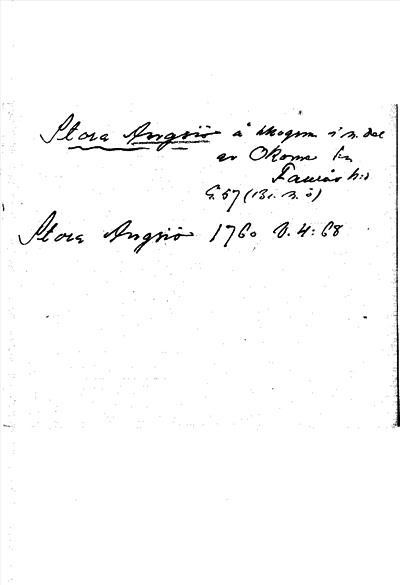 Stora Angsiö å skogen i n. del
av Okome sn
Faurås hd
G.57 (131. n. ö)
Stora Angsiö 1760 v. 4: 68